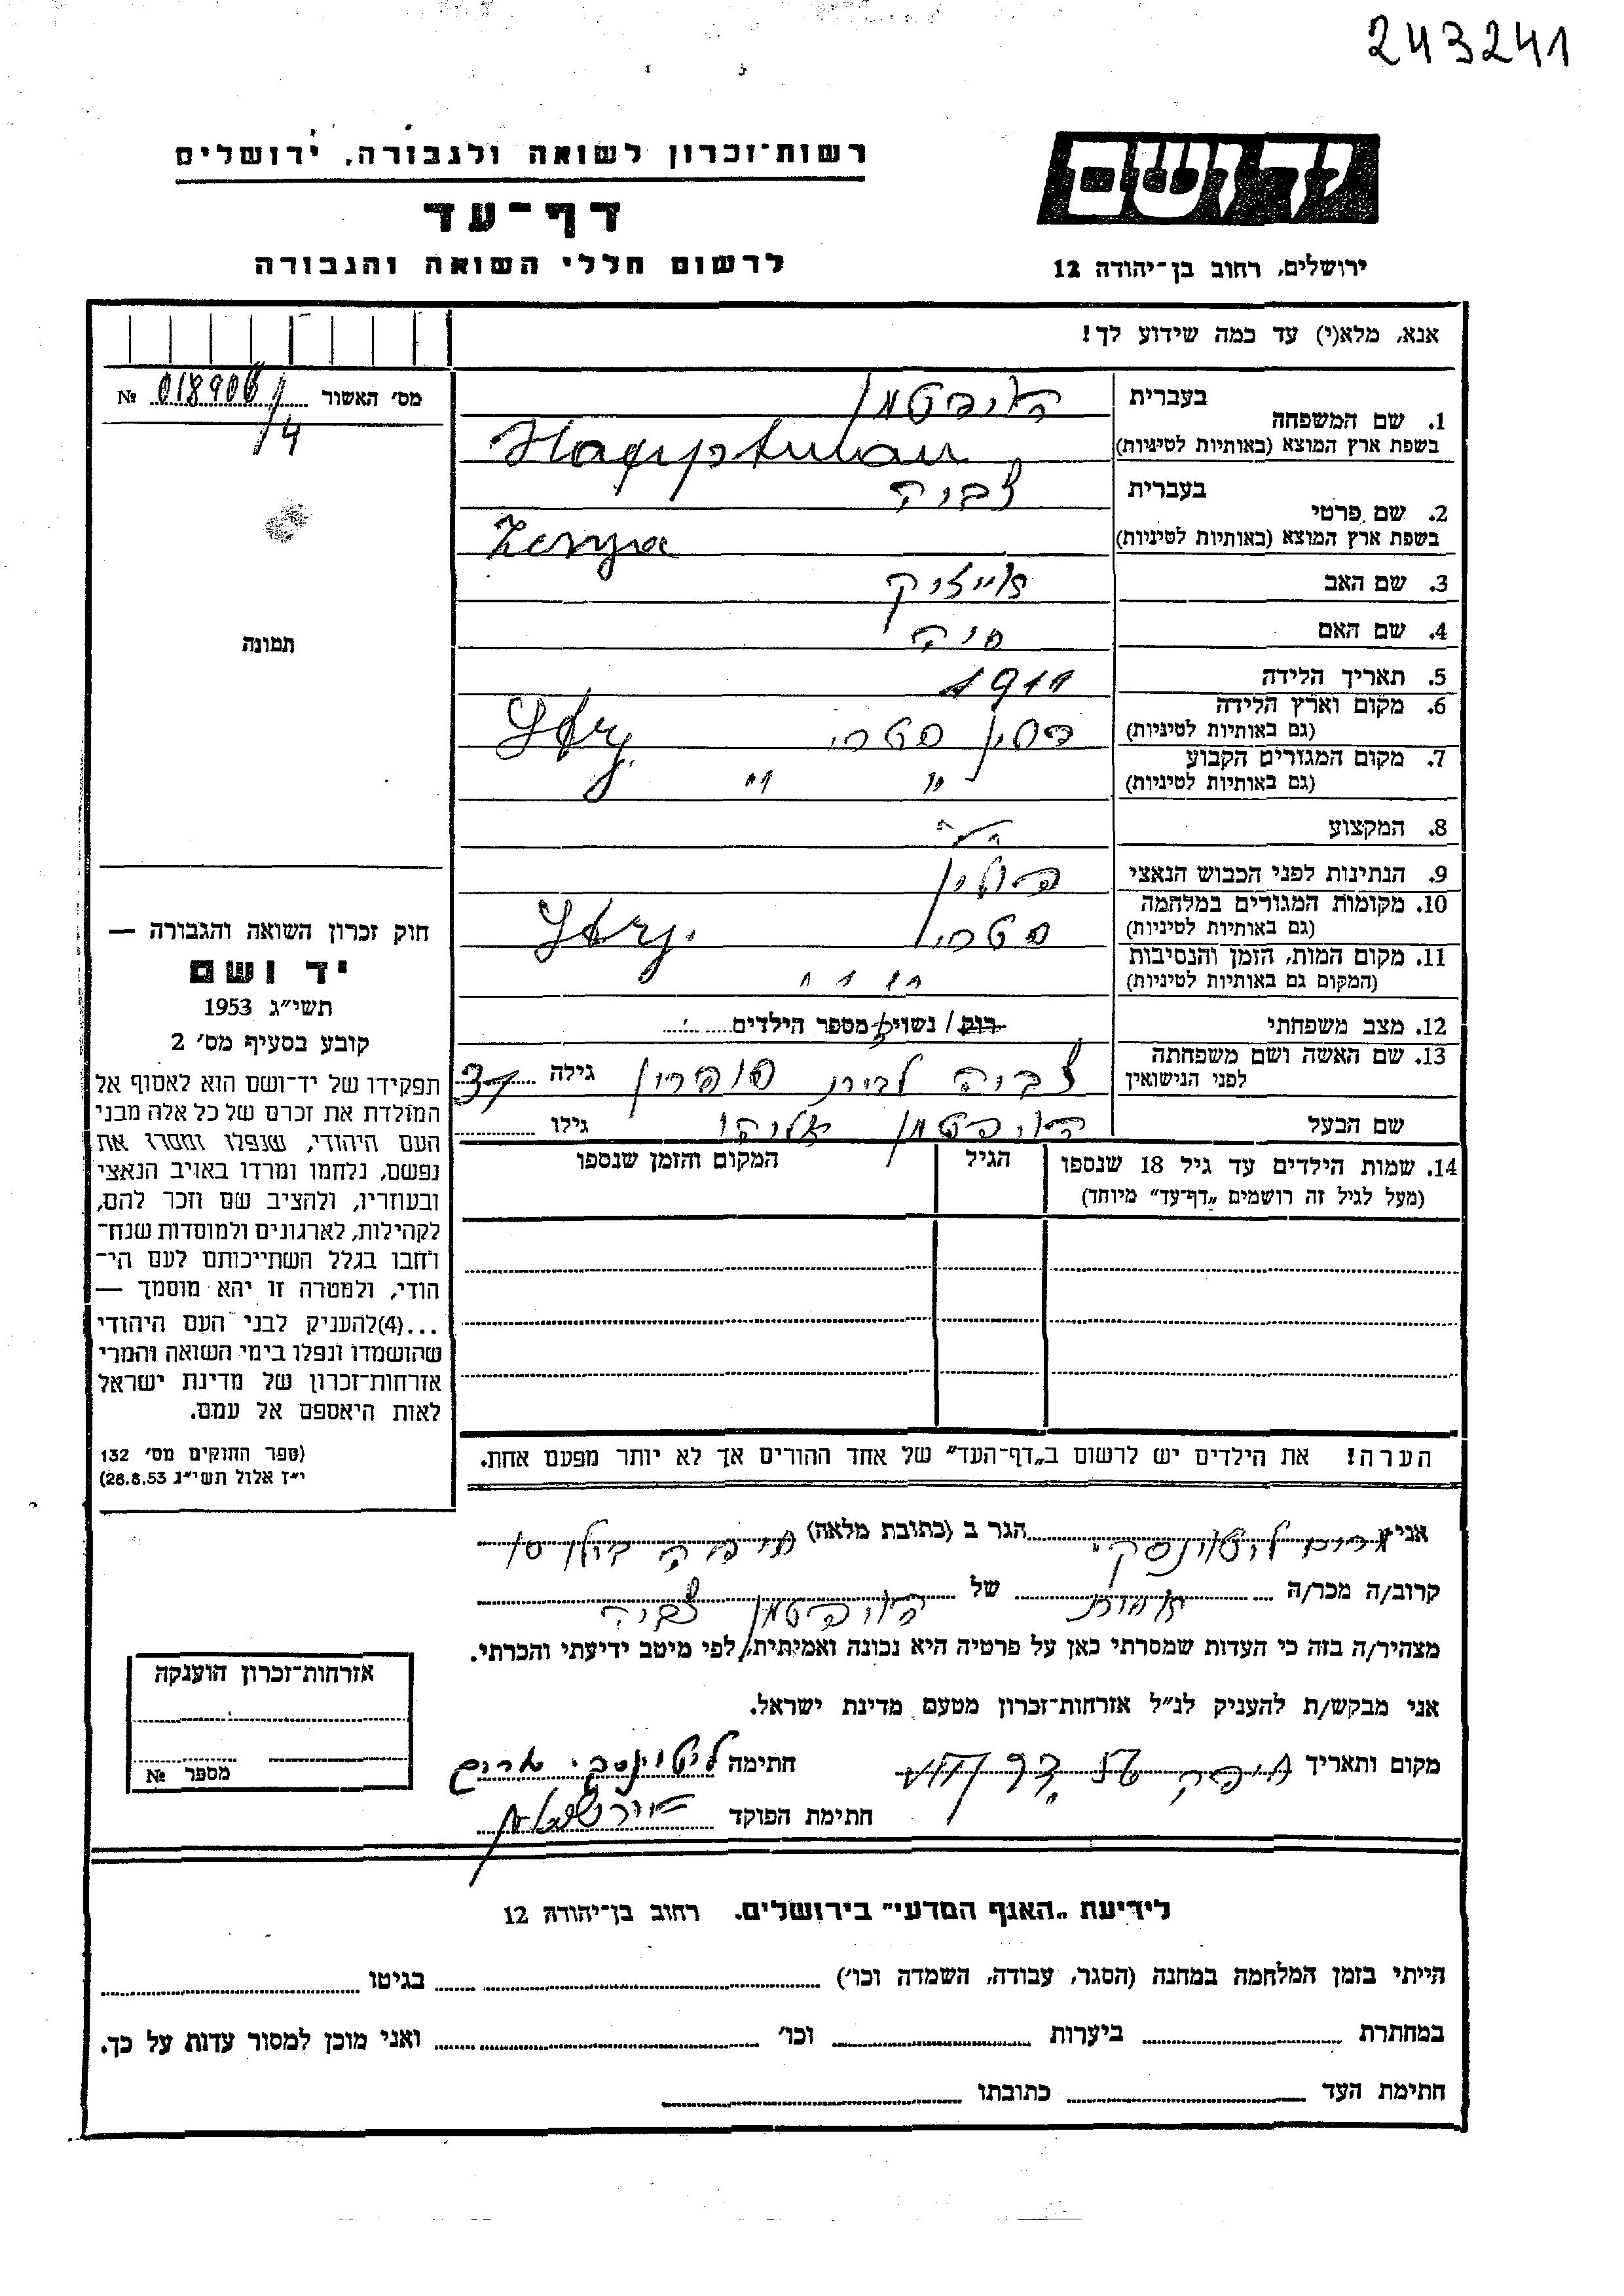 243241
יד ושם
ירושלים, רחוב בן־יהודה 12
רשות־זכרון לשואה ולגבורה, ירושלים
דף־עד
לרשום חללי השואה והגבורה
אנא, מלא(י) עד כמה שידוע לך!
מס׳ האשור 018906 №
/4
תמונה
1. שם המשפחה
בעברית הופטמן
בשפת ארץ המוצא (באותיות לטיניות) Hauptman
2. שם פרטי
בעברית צביה
בשפת ארץ המוצא (באותיות לטיניות)
3. שם האב אייזיק
4. שם האם חיה
5. תאריך הלידה 1911
6. מקום וארץ הלידה
(גם באותיות לטיניות) פולין סטרי Stry
7. מקום המגורים הקבוע
(גם באותיות לטיניות) " "
8. המקצוע
9. הנתינות לפני הכבוש הנאצי פולין
10. מקומות המגורים במלחמה
(גם באותיות לטיניות) סטרי Stry
11. מקום המות, הזמן והנסיבות
(המקום גם באותיות לטיניות) " "
12. מצב משפחתי רווק / נשוי מספר הילדים
13. שם האשה ושם משפחתה
לפני הנישואין צביה לבית גילה 37
שם הבעל הופטמן אליהו גילו
14. שמות הילדים עד גיל 18 שנספו
(מעל לגיל זה רושמים „דף־עד” מיוחד)
הגיל
המקום והזמן שנספו
הערה! את הילדים יש לרשום ב„דף־העד” של אחד ההורים אך לא יותר מפעם אחת.
חוק זכרון השואה והגבורה —
יד ושם
תשי״ג 1953
קובע בסעיף מס׳ 2
תפקידו של יד־ושם הוא לאסוף אל
המולדת את זכרם של כל אלה מבני
העם היהודי, שנפלו ומסרו את
נפשם, נלחמו ומרדו באויב הנאצי
ובעוזריו, ולהציב שם וזכר להם,
לקהילות, לארגונים ולמוסדות שנח־
רחבו בגלל השתייכותם לעם הי־
הודי, ולמטרה זו יהא מוסמך —
...(4) להעניק לבני העם היהודי
שהושמדו ונפלו בימי השואה והמרי
אזרחות־זכרון של מדינת ישראל
לאות היאספם אל עמם.
(ספר החוקים מס׳ 132
י״ז אלול תשי״ג 28.8.53)
אני מרים ליטוינסקי הגר ב (כתובת מלאה) חיפה
קרוב/ה מכר/ה אחות של הופטמן צביה
מצהיר/ה בזה כי העדות שמסרתי כאן על פרטיה היא נכונה ואמיתית, לפי מיטב ידיעתי והכרתי.
אני מבקש/ת להעניק לנ״ל אזרחות־זכרון מטעם מדינת ישראל.
מקום ותאריך חיפה חתימה ליטוינסקי מרים
חתימת הפוקד
אזרחות־זכרון הוענקה
מספר №
לידיעת „האגף המדעי” בירושלים. רחוב בן־יהודה 12
הייתי בזמן המלחמה במחנה (הסגר, עבודה, השמדה וכו׳) בגיטו
במחתרת ביערות וכו׳ ואני מוכן למסור עדות על כך.
חתימת העד כתובתו